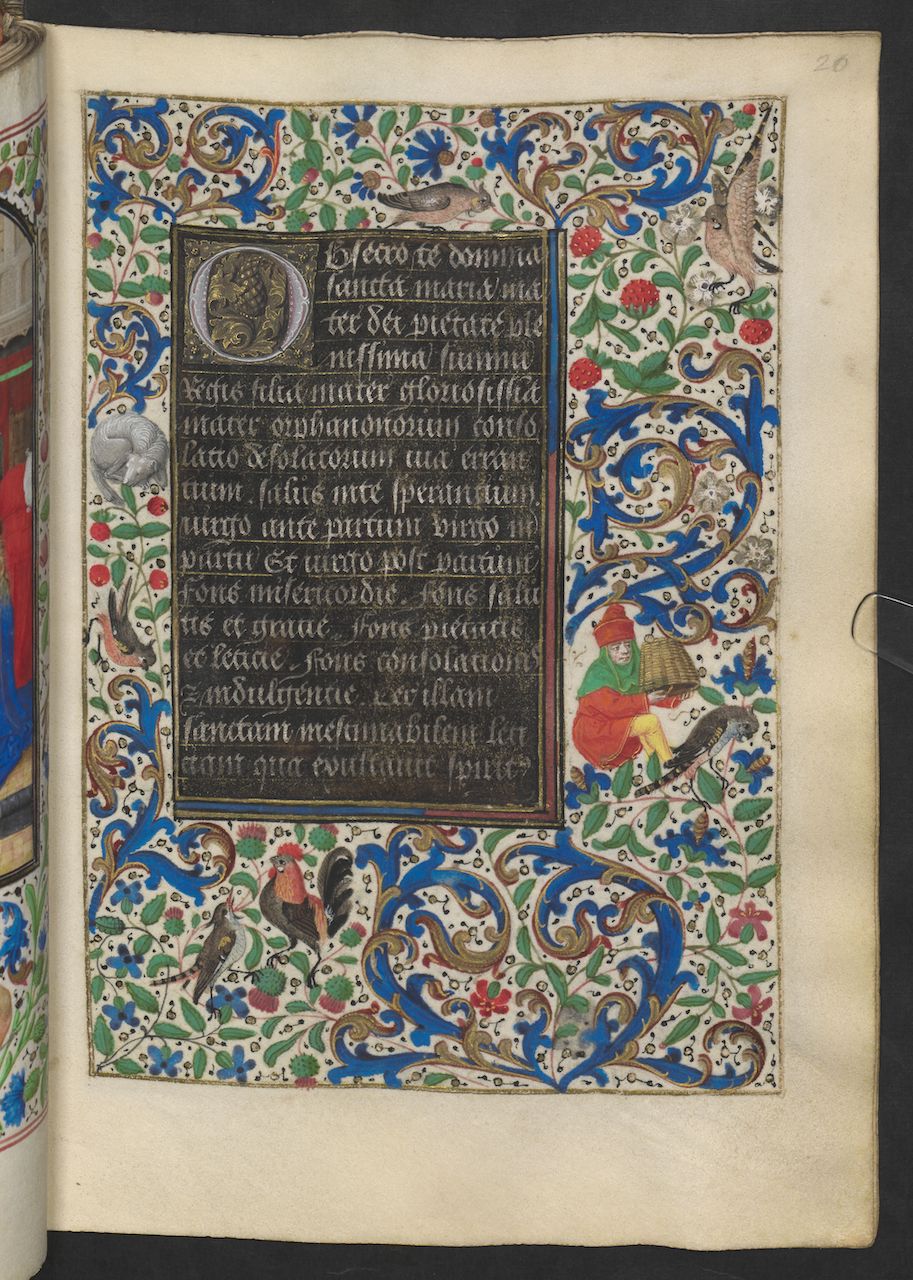 20
Obsecro te domina
sancta maria ma
ter dei pietate ple
nissima summi
Regis filia mater gloriosissia
mater orphanonorum conso
latio desolatorum uia erran
tium. salus inte sperantium
uirgo ante partum virgo in
partu Et uirgo post partum
Fons misericordie. fons salu
tis et gracie. fons pietatis
et leticie. fons consolationis
⁊ indulgentie. Per illam
sanctam inestimabilem leti
ciam qua exultauit spirit9